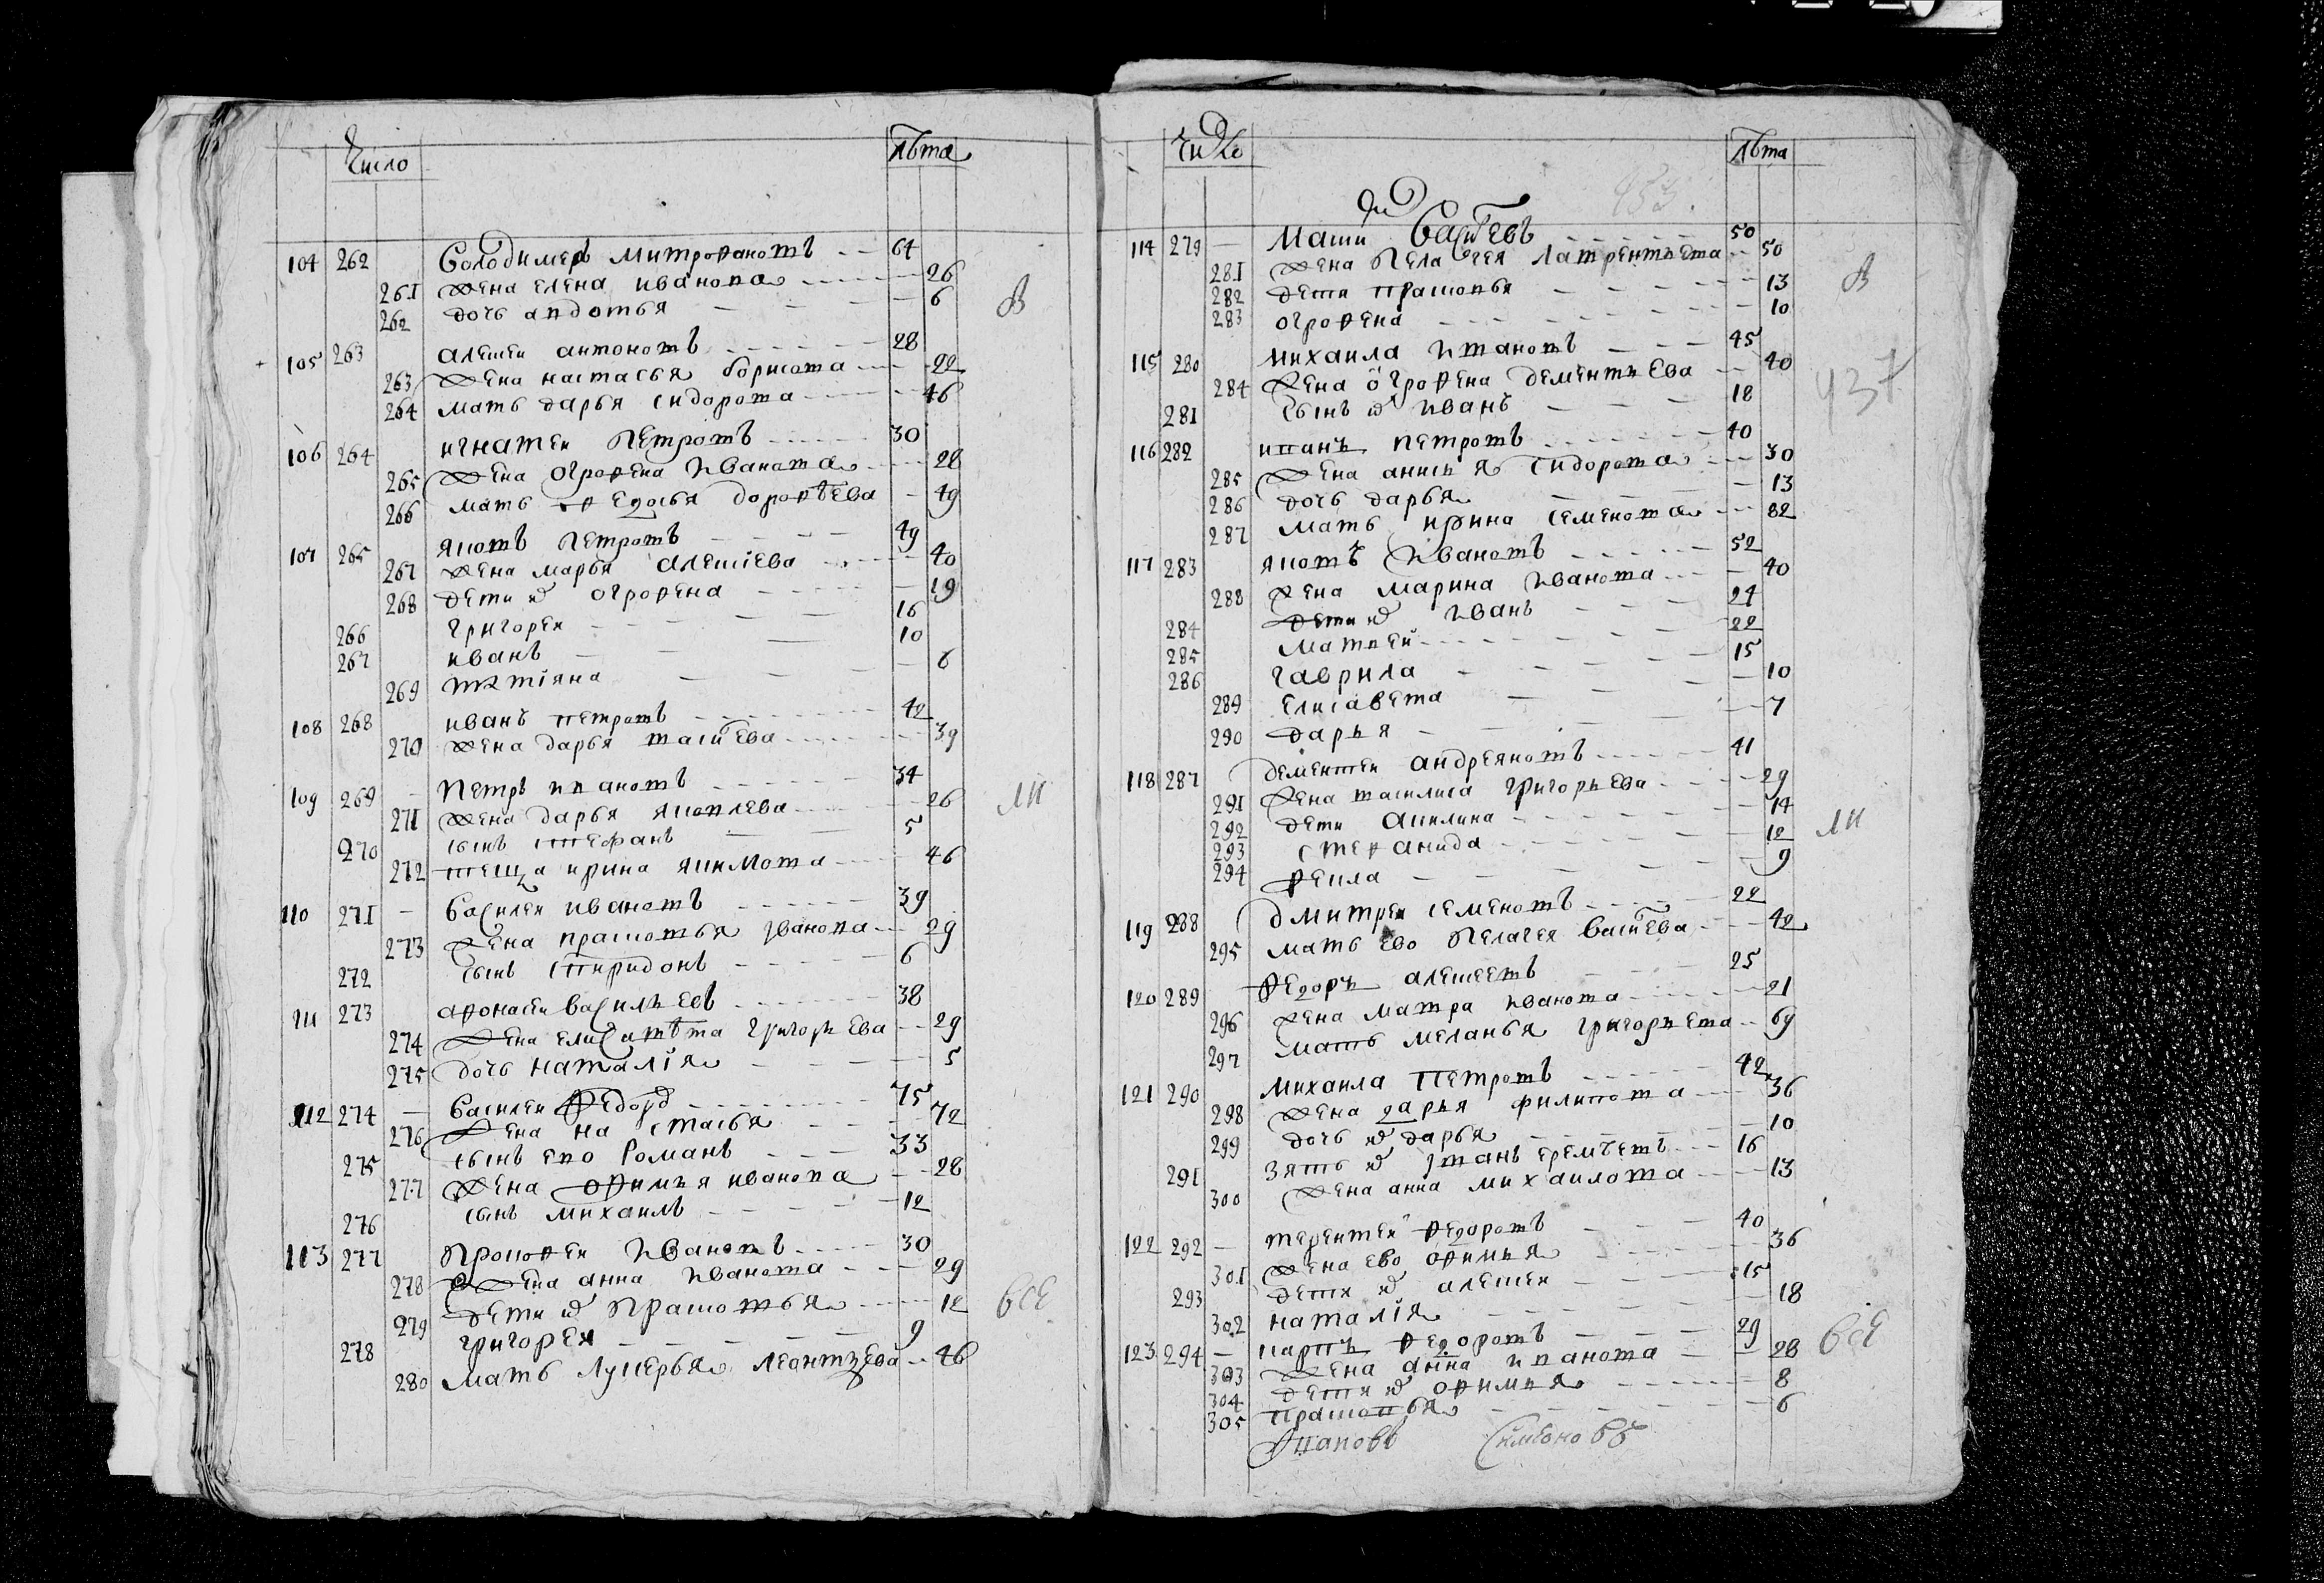 Число лѣта
104 262 Володимеръ митрофановъ 64
261 жена елена иванова 26
262 дочь авдотья 6
105 263 алексеи антоновъ 28
263 жена настасья борисова 22
264 мать дарья сидорова 46
106 264 игнатеи Петровъ 30
265 жена огрофена Иванова 28
266 мать федосья дорофѣева 49
107 265 яковъ Петровъ 49
267 жена марья алексіева 40
268 дети их огрофена 19
266 григореи 16
267 иванъ 10
269 татіяна 8
108 268 иванъ петровъ 42
270 жена дарья василева 39
109 269 Петръ ивановъ 34
271 жена дарья яковлева 26
270 сынъ стефанъ 5
272 теща ирина якимова 46
110 271 Василеи ивановъ 39
273 жена прасковья Иванова 29
272 сынъ спиридонъ 6
111 273 афонасеи васильевъ 38
274 жена елисавѣта григорьева 29
275 дочь наталія 5
112 274 Василеи Федоровъ 75
276 жена настасья 72
275 сынъ ево Романъ 33
277 жена офимья иванова 28
276 сынъ михаилъ 12
113 277 Прокофеи Ивановъ 30
278 жена анна Иванова 29
279 дети их Прасковья 12
278 григореи 9
280 мать Лукерья леонтьева 46
А
ЛИ
ВСЕ
Число лѣта
433.
114 279 Васильевъ 50
281 жена Пелагея Лаврентьева 50
282 дети прасковья 13
283 огрофена 10
115 280 михаила Ивановъ 45
284 жена огрофена дементьева 40
281 сынъ их Иванъ 18
116 282 иванъ петровъ 40
285 жена анисья сидорова 30
286 дочь дарья 13
287 мать ирина семенова 82
117 283 яковъ Ивановъ 52
288 жена марина Иванова 40
284 дети их Иванъ 24
285 матвеи 22
286 гаврила 15
289 Елисавета 10
290 дарья 7
118 287 дементеи андреяновъ 41
291 жена василиса григорьева 29
292 дети акилина 14
293 стефанида 12
294 фекла 9
119 288 дмитреи семеновъ 22
295 мать ево Пелагея васильева 42
120 289 Федоръ алексеевъ 25
296 жена мавра Иванова 21
297 мать меланья григорьева 69
121 290 михаила Петровъ 42
298 жена дарья филипова 36
299 дочь их дарья 10
291 зять их Иванъ еремѣевъ 16
300 жена анна михаилова 13
122 292 терентеи федоровъ 40
301 жена ево офимья 36
293 дети их алексеи 15
302 наталія 18
123 294 карпъ федоровъ 29
303 жена анна иванова 28
304 дети их офимья 8
305 прасковья 6
Симеоновъ
А
437
ЛИ
ВСЕ